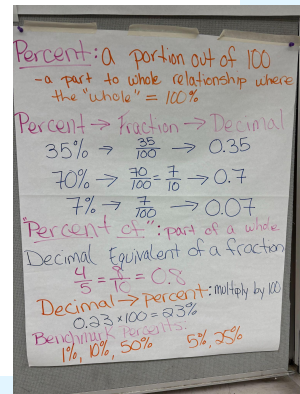 Percent: a portion out of 100
- a part to whole relationship where
the "whole" = 100%
Percent → Fraction → Decimal
35% → 35/100 → 0.35
70% → 70/100 = 7/10 → 0.7
7% → 7/100 → 0.07
"Percent of": part of a whole
Decimal Equivalent of a fraction
4/5 = 8/10 = 0.8
Decimal → percent: multiply by 100
0.23 × 100 = 23%
Benchmark Percents:
1%, 10%, 50% 5%, 25%